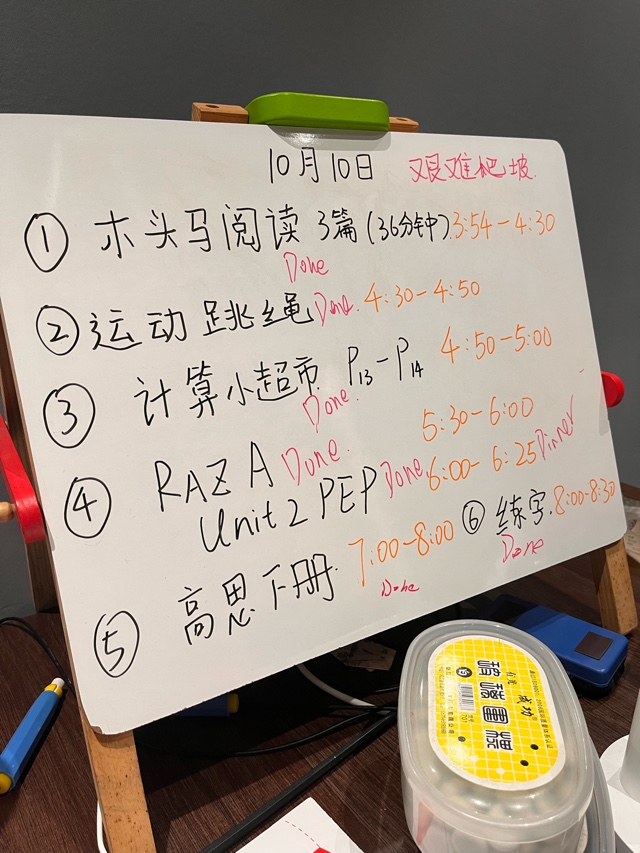 10月10日 艰难爬坡
① 木头马阅读 3篇 (36分钟) 3:54-4:30
Done
② 运动 跳绳 Done. 4:30-4:50
③ 计算小超市 P13-P14 4:50-5:00
Done.
④ RAZ A Done. 5:30-6:00
Unit 2 PEP Done 6:00-6:25 Dinner
⑤ 高思下册. 7:00-8:00
Done
⑥ 练字. 8:00-8:30
Done
成功